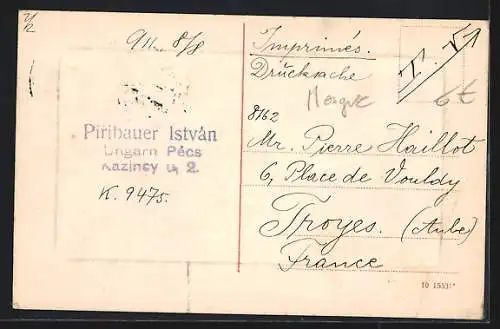 911. 8/8
Piribauer István
Ungarn Pécs
Kazincy u. 2.
K. 9475.
Imprimés.
Drücksache
T. V.
6€
8162
Mr. Pierre Haillot
6, Place de Vouldy
Troyes. (Aube)
France